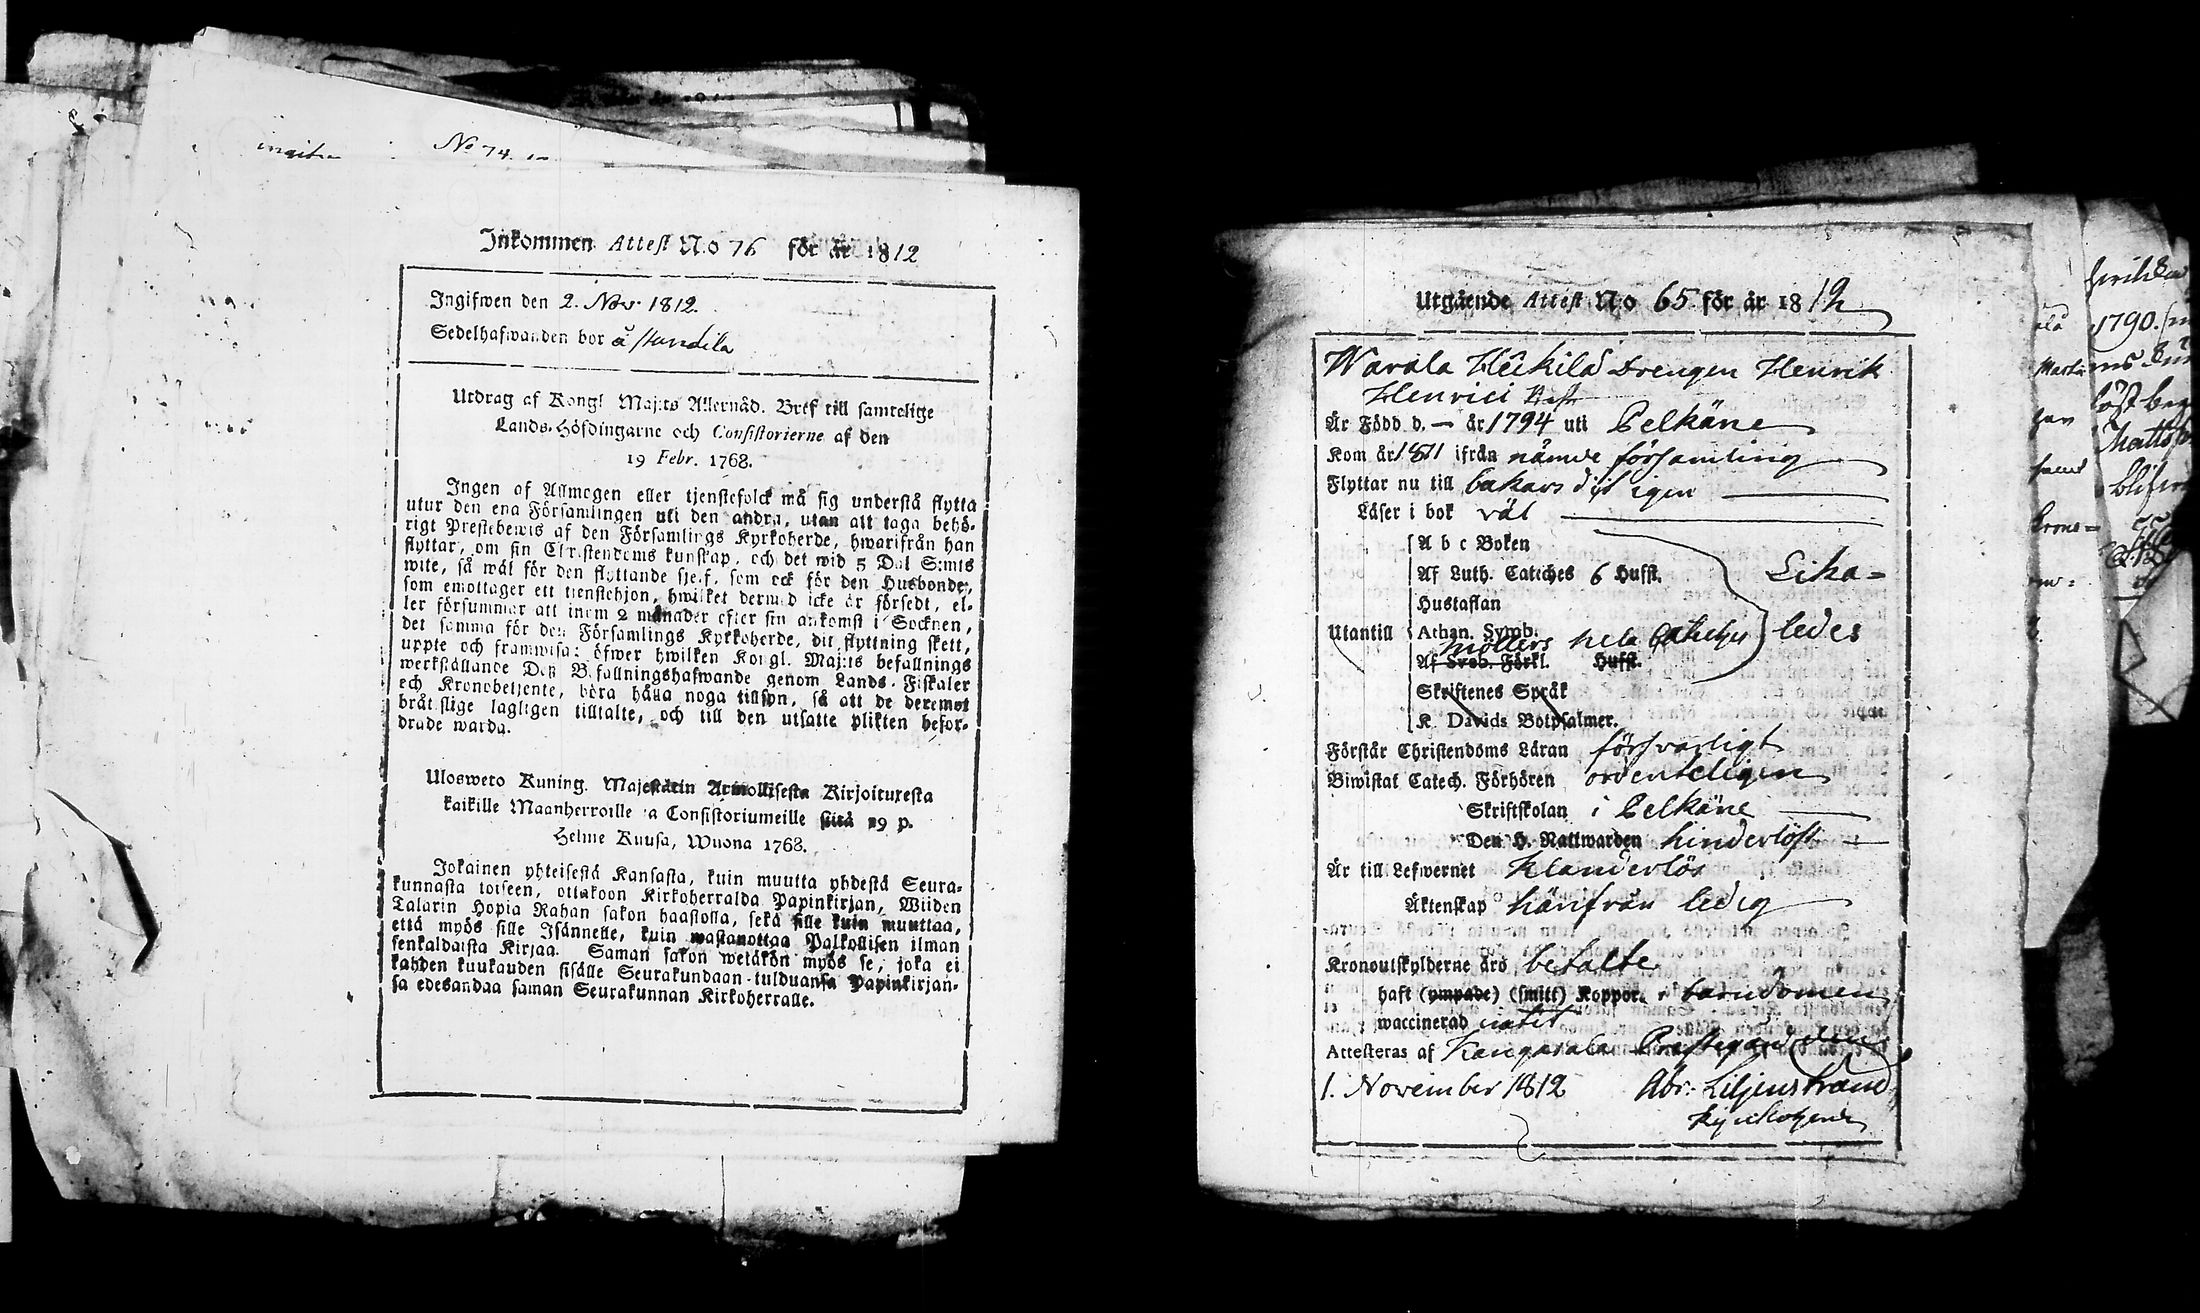 No 74.
Inkommen Attest N:o 76 för år 1812
Ingifwen den 2. Nov. 1812.
Sedelhafwanden bor å
Utdrag af Kongl. Maj:ts Allernåd. Bref till samtelige
Lands-Höfdingarne och Consistorierne af den
19 Febr. 1768.
Ingen af Allmogen eller tjenstefolck må sig understå flytta
utur den ena Församlingen uti den andra, utan att taga behö-
rigt Prestebewis af den Församlings Kyrkoherde, hwarifrån han
flyttar, om sin Christendoms kunskap, och det wid 5 Dal. S:mts
wite, så wäl för den flyttande sjelf, som ock för den Husbonde,
som emottager ett tjenstehjon, hwilket dermed icke är försedt, el-
ler försummar att inom 2 månader efter sin ankomst i Socknen,
det samma för den Församlings Kyrkoherde, dit flyttning skett,
uppte och framwisa: öfwer hwilken Kongl. Maj:ts befallnings
werkställande Deß Befallningshafwande genom Lands-Fiskaler
och Kronobetjente, böra hålla noga tillsyn, så att de deremot
bråtslige lagligen tilltalte, och till den utsatte plikten befor-
drade warda.
Ulosweto Kuning. Majestätin Armollisesta Kirjoituxesta
kaikille Maanherroille ja Consistoriumeille siitä 19 p.
Helme Kuusa, Wuonna 1768.
Jokainen yhteisestä Kansasta, kuin muutta yhdestä Seura-
kunnasta toiseen, ottakoon Kirkoherralda Papinkirjan, Wiiden
Talarin Hopia Rahan sakon haastolla, sekä sille kuin muuttaa,
että myös sille Isännelle, kuin wastanottaa Palkollisen ilman
senkaldaista Kirjaa. Saman sakon wetäkön myös se, joka ei
kahden kuukauden sisälle Seurakundaan tulduansa Papinkirjan-
sa edesandaa saman Seurakunnan Kirkoherralle.
Utgående Attest N:o 65 för år 1812
Warala Heikilä Drengen Henrik
Henrici
Är Född d. — år 1794 uti Pelkäne
Kom år 1811 ifrån nämde församling
Flyttar nu till bakars dit igen
Läser i bok väl
Utantill
A b c Boken
Af Luth. Catеches 6 Hufst.
Hustaflan
Athan. Symb.
Möllers hela Cateches
Af Sveb. Förkl. Hufst.
Skriftenes Språk
K. Davids Botpsalmer.
Lika=
ledes
Förstår Christendoms Läran försvarligt
Biwistat Catech. Förhören ordenteligen
Skriftskolan i Pelkäne
Den H. Nattwarden hinderlöst
Är till Lefwernet Klanderlös
Äktenskap härifrån ledig
Kronoutskylderne äro betalte
haft (ympade) (smitt) Koppor i barndomen
waccinerad
Attesteras af Kangasala Prästegård den
1. November 1812 Abr. Liljenstrand
Kyrkoherde
1790.